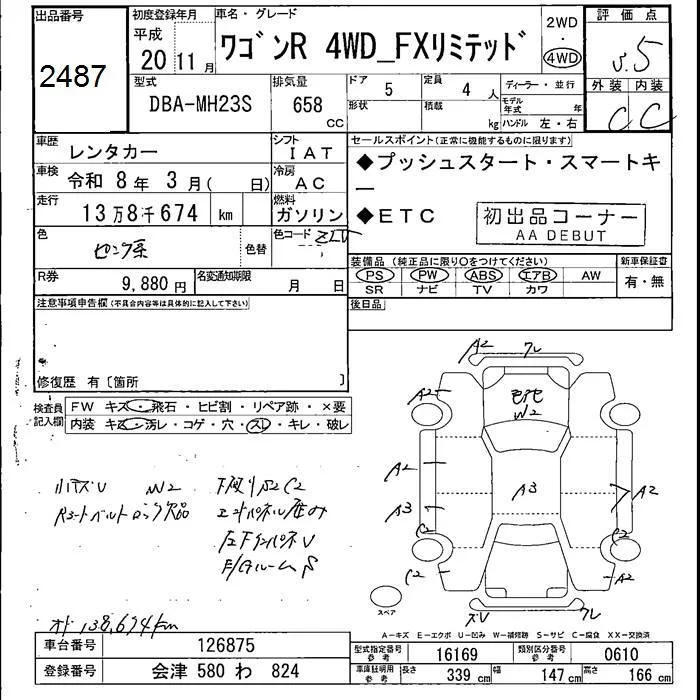 出品番号
2487
初度登録年月
平成
20 11月
車名・グレード
ワゴンR 4WD_FXリミテッド
2WD
・
4WD
評価点
外装 内装
C C
型式
DBA-MH23S
排気量
658
CC
ドア 5
形状
定員 4 人
積載 kg
ディーラー・並行
モデル年式 年
ハンドル 左・右
車歴 レンタカー
シフト IAT
車検 令和 8年 3月( 日)
冷房 AC
走行 13万8千674 km
燃料 ガソリン
色 ピンク系
色替
色コード ZLV
R券 9,880円
名変通知期限 月 日
セールスポイント(正常に機能するものに限ります)
◆プッシュスタート・スマートキ
ー
◆ETC
初出品コーナー
AA DEBUT
装備品 (純正品に限り○をつけてください)
PS PW ABS エアB AW
SR ナビ TV カワ
新車保証書
有・無
注意事項申告欄(不具合内容等は具体的に記入して下さい)
後日品
修復歴 有〔箇所 〕
検査員記入欄
FW キズ・飛石・ヒビ割・リペア跡・×要
内装 キズ・汚レ・コゲ・穴・スレ・キレ・破レ
A2 フレ
A2
W2
A2
A3
A3
A2
C2
C2
C2
A2
ズV フレ
スペア
W2
C2
オド 138,674km
A-キズ E-エクボ U-凹み W-補修跡 S-サビ C-腐食 XX-交換済
車台番号 126875
登録番号 会津 580 わ 824
型式指定番号参考 16169
類別区分番号参考 0610
車庫証明用参考
長さ 339 cm
幅 147 cm
高さ 166 cm